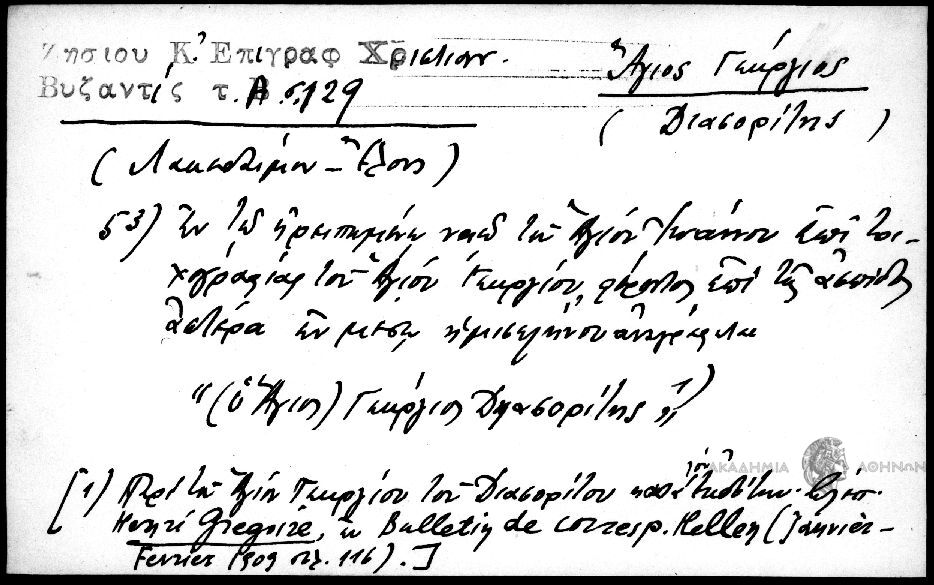 Ζησιου Κ. Επιγραφ Χριστιαν.
Βυζαντίς τ. Α σ. 129
Ἅγιος Γεώργιος
(Διασορίτης)
(Λακεδαίμων - Ἕλους)
53) Ἐν τῷ ἠρειπωμένῳ ναῷ τοῦ Ἁγίου Ἰωάννου ἐπὶ τοι-
χογραφίας τοῦ Ἁγίου Γεωργίου, φέροντος ἐπὶ τῆς ἀσπίδος
ἀστέρα ἐν μέσῳ ἡμισελήνου ἀναγράφεται
"(ὁ Ἅγιος) Γεώργιος Δηασορίτης" 1)
[1) Περὶ τοῦ Ἁγίου Γεωργίου τοῦ Διασορίτου
Henri Gregoire, ἐν Bulletin de corresp. Hellen (Janvier-
Fevrier 1909 σελ. 116).]
ΑΚΑΔΗΜΙΑ ΑΘΗΝΩΝ